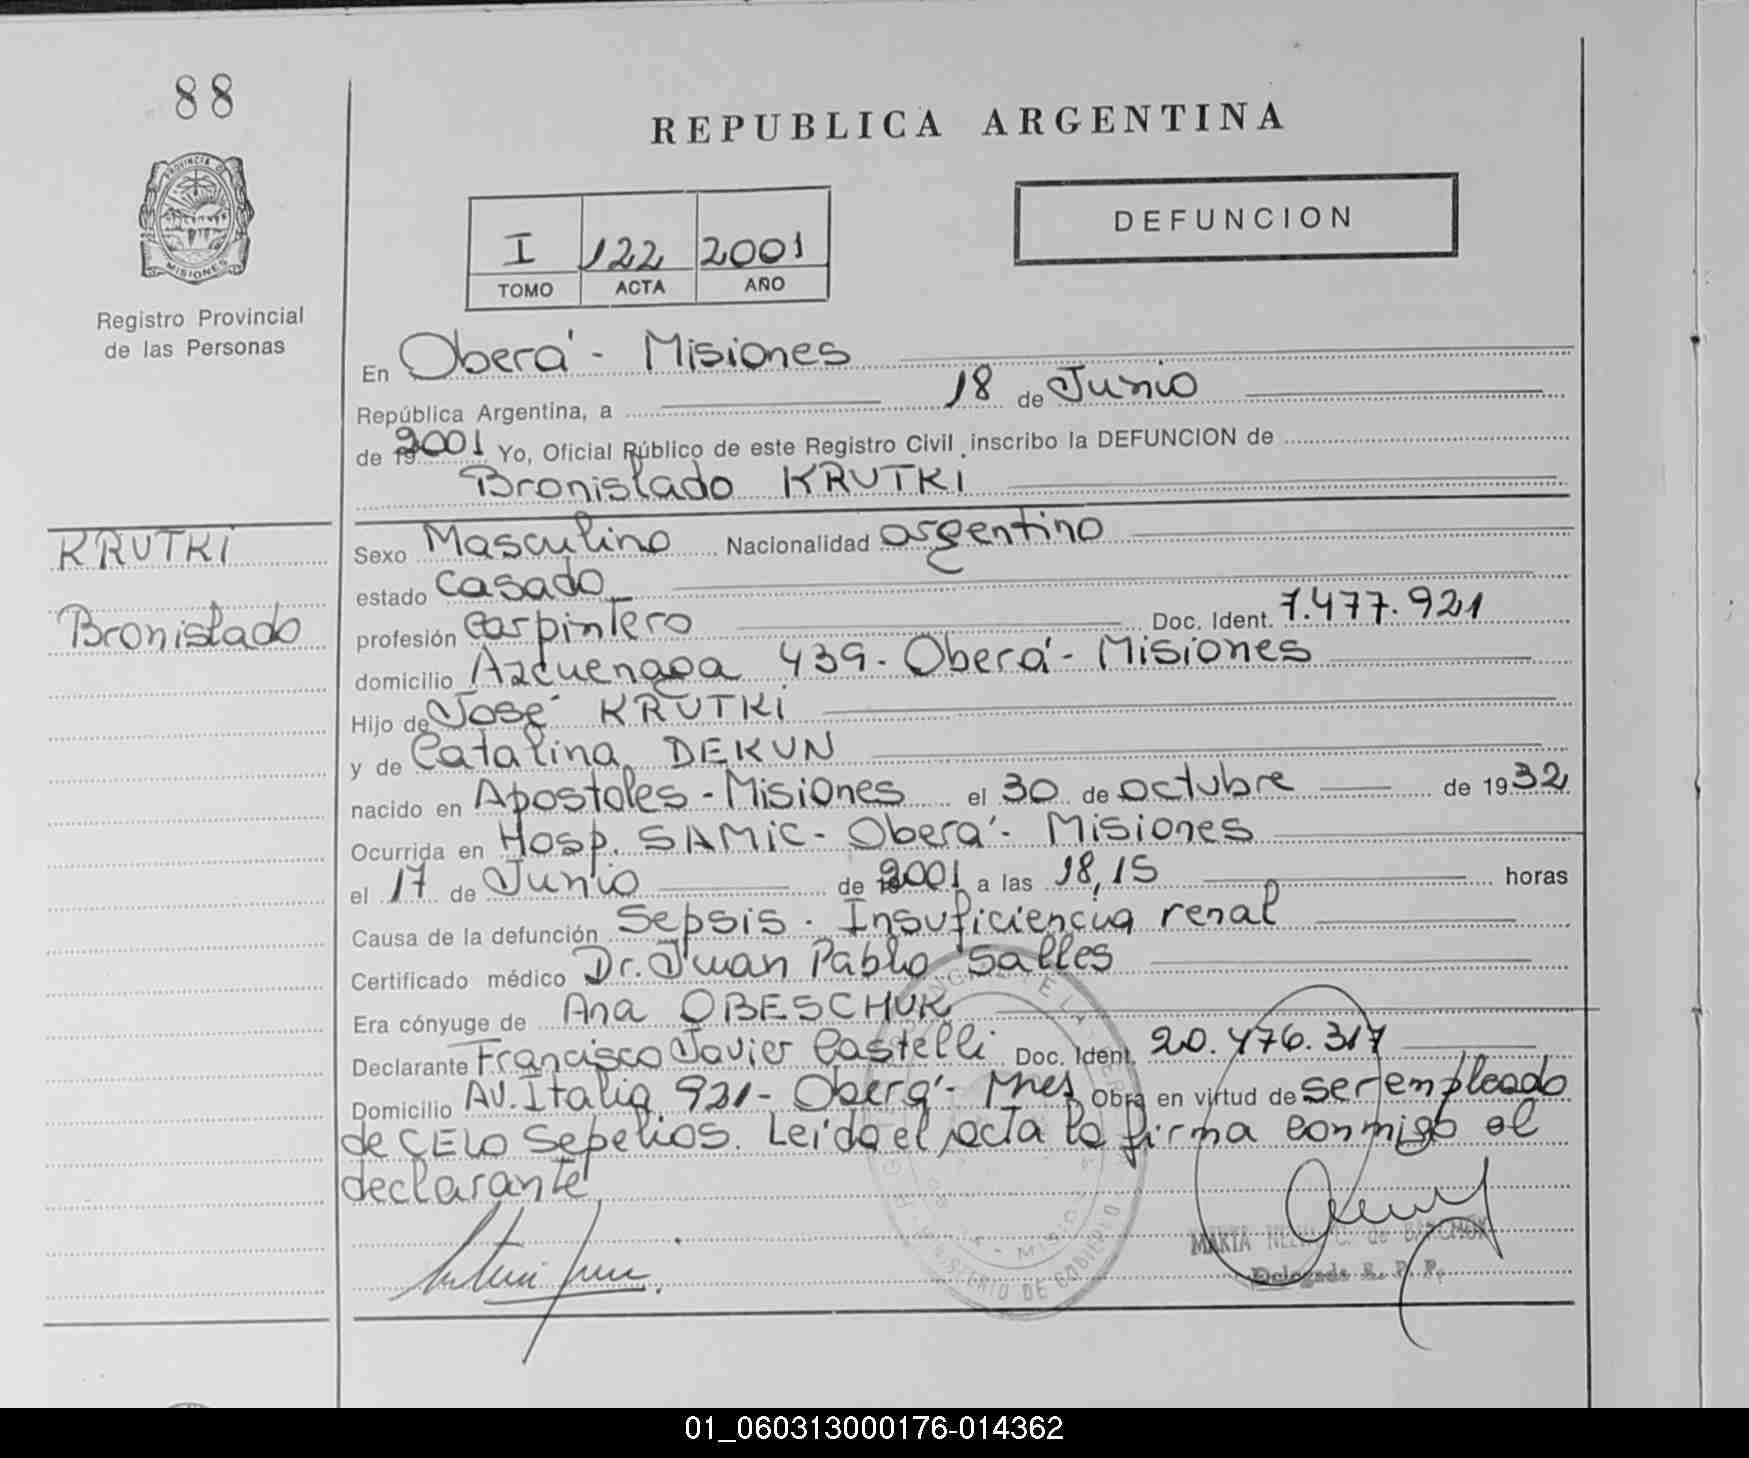 88
REPUBLICA ARGENTINA
DEFUNCION
I 122 2001
TOMO ACTA AÑO
PROVINCIA
MISIONES
Registro Provincial
de las Personas
En Oberá - Misiones
República Argentina, a 18 de Junio
de 2001 Yo, Oficial Público de este Registro Civil inscribo la DEFUNCION de
Bronislado KRUTKI
KRUTKI
Bronislado
Sexo Masculino Nacionalidad argentino
estado casado
profesión carpintero Doc. Ident. 7.477.921
domicilio Azcuenaga 439 - Oberá - Misiones
Hijo de José KRUTKI
y de Catalina DEKUN
nacido en Apostoles - Misiones el 30 de octubre de 1932
Ocurrida en Hosp. SAMIC - Oberá - Misiones
el 17 de Junio de 2001 a las 18,15 horas
Causa de la defunción Sepsis - Insuficiencia renal
Certificado médico Dr. Juan Pablo Salles
Era cónyuge de Ana OBESCHUK
Declarante Francisco Javier Castelli Doc. Ident. 20.476.317
Domicilio Av. Italia 921 - Oberá - Mnes Obra en virtud de ser empleado
de CELO Sepelios. Leída el acta la firma conmigo el
declarante
MINISTERIO DE GOBIERNO
MARIA
Delegada R. P. P.
01_060313000176-014362